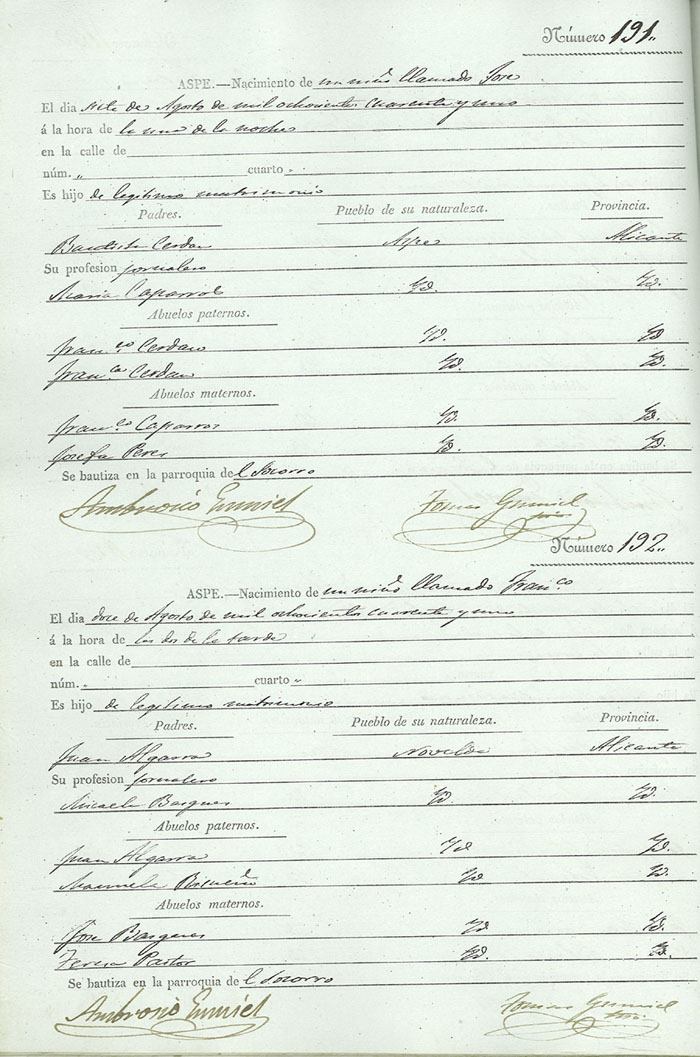 Número 191.
ASPE.—Nacimiento de un niño llamado Jose
El dia siete de Agosto de mil ochocientos cuarenta y uno
á la hora de la una de la noche
en la calle de
núm. „ cuarto „
Es hijo de legitimo matrimonio
Padres. Pueblo de su naturaleza. Provincia.
Bautista Cerdan Aspe Alicante
Su profesion jornalero
Maria Caparros Yd. Yd.
Abuelos paternos.
Fran.co Cerdan Yd. Yd.
Fran.ca Cerdan Yd. Yd.
Abuelos maternos.
Fran.co Caparros Yd. Yd.
Josefa Peres Yd. Yd.
Se bautiza en la parroquia del Socorro
Ambrosio Tomas
Número 192.
ASPE.—Nacimiento de un niño llamado Fran.co
El dia doce de Agosto de mil ochocientos cuarenta y uno
á la hora de las dos de la tarde
en la calle de
núm. „ cuarto „
Es hijo de legitimo matrimonio
Padres. Pueblo de su naturaleza. Provincia.
Juan Algarra Novelda Alicante
Su profesion jornalero
Micaela Basques Yd. Yd.
Abuelos paternos.
Juan Algarra Yd. Yd.
Manuela Yd. Yd.
Abuelos maternos.
Jose Basques Yd. Yd.
Teresa Pastor Yd. Yd.
Se bautiza en la parroquia del Socorro
Ambrosio Tomas